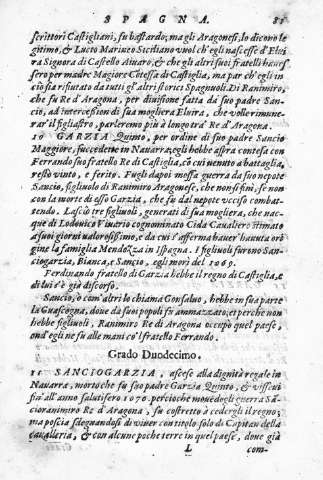 SPAGNA. 81
scrittori Castigliani, fu bastardo; ma gli Aragonesi, lo dicono le
gitimo, & Lucio Marineo Siciliano vuol ch'egli nascesse d'Eluí
ra Signora di Castello Aiuaro, & che gli altri suoi fratelli haues
sero per madre Magiore Cõtessa di Castiglia, ma par ch'egli in
ciò sia rifiutato da tutti gl'altri storici Spagnuoli. Di Ranimiro,
che fu Re d'Aragona, per diuisione fatta da suo padre San-
cio, ad intercession di sua mogliera Eluira, che volle rimune-
rar'il figliastro, parleremo più à longo trà Re d'Aragona.
10 GARZIA Quinto, per ordine di suo padre Sancio
Maggiore, succedette in Nauarra, egli hebbe aspra contesa con
Ferrando suo fratello Re di Castiglia, cõ cui uenuto a battaglia,
restò vinto, e ferito. Fugli dapoi mossa guerra da suo nepote
Sancio, figliuolo di Ranimiro Aragonese, che non finì, se non
con la morte di esso Garzia, che fu dal nepote vcciso comba-
tendo. Lasciò tre figliuoli, generati di sua mogliera, che nac-
que di Lodouico Viuario cognominato Cida Caualiero stimato
a' suoi giorni ualorosissimo, e da cui s'afferma hauer'hauuta ori
gine la famiglia Mendozza in Ispagna. I figliuoli furono San-
ciogarzia, Bianca, e Sancio, egli morì del 1069.
Ferdinando fratello di Garzia hebbe il regno di Castiglia, e
di lui s'è già discorso.
Sancio, o com'altri lo chiama Consaluo, hebbe in sua parte
la Guascogna, doue da suoi popoli fù ammazzato; et perche non
hebbe figliuoli, Ranimiro Re di Aragona occupò quel paese,
ond'egli ne fu alle mani co'l fratello Ferrando.
Grado Duodecimo.
11 SANCIOGARZIA, ascese alla dignità regale in
Nauarra, morto che fu suo padre Garzia Quinto, & vissevi
fin'all'anno salutifero 1070. percioche mouendogli guerra San-
cioranimiro Re d'Aragona, fu costretto à cedergli il regno;
ma poscia sdegnandosi di viuer con titolo solo di Capitan della
caualleria, & con alcune poche terre in quel paese, doue già
L com-